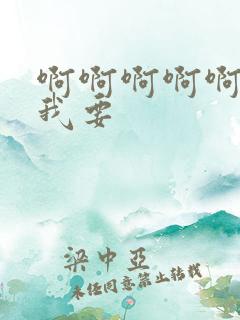 啊啊啊啊啊
我要
梁中亞
未经同意禁止转载